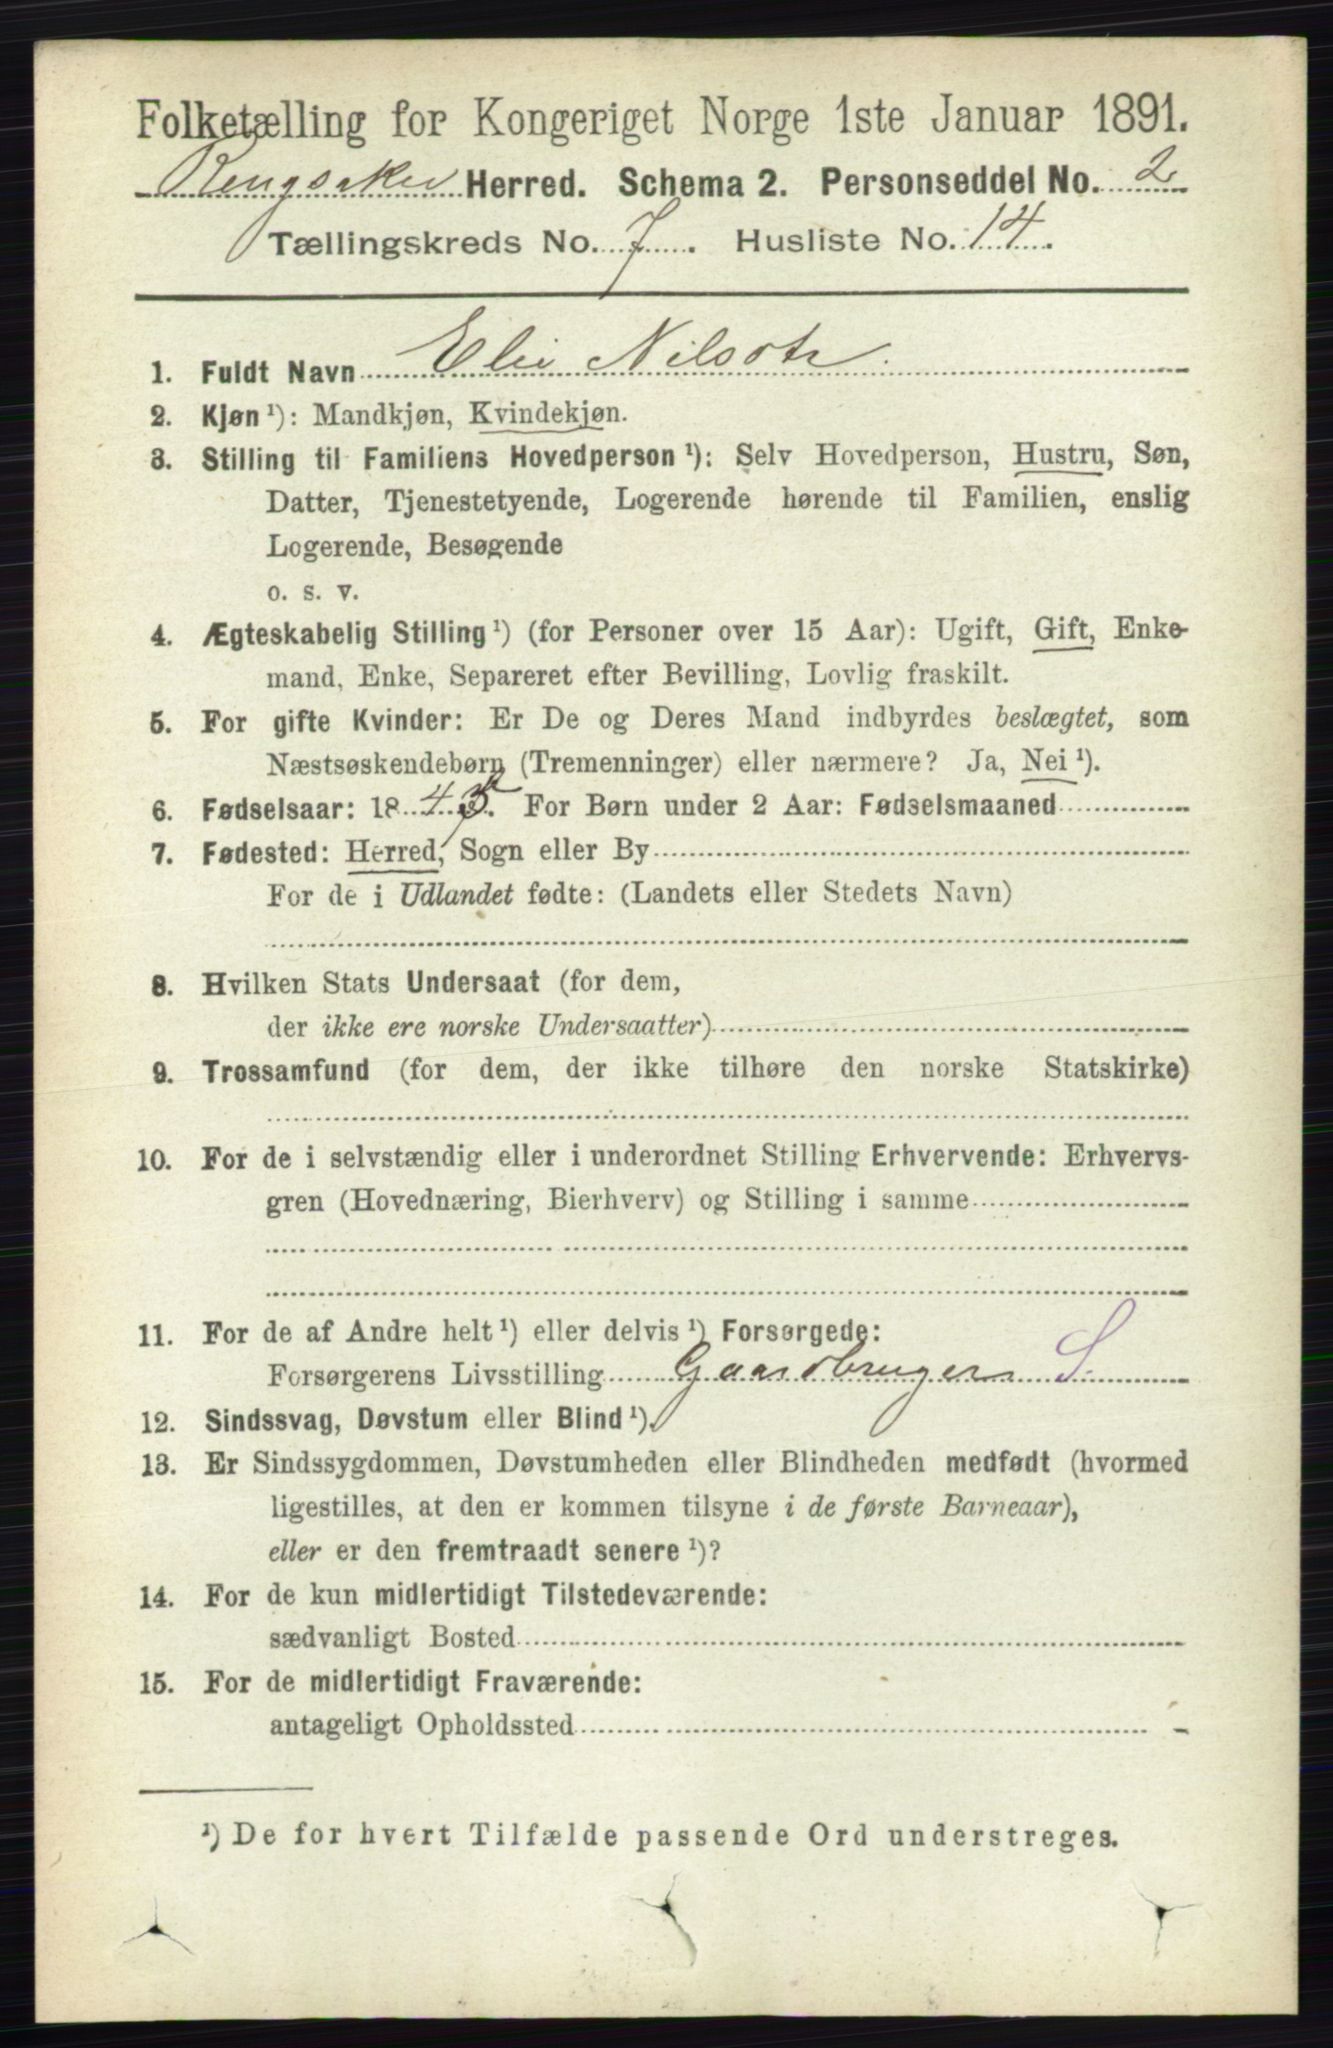 Folketælling for Kongeriget Norge 1ste Januar 1891.
Ringsaker Herred. Schema 2. Personseddel No. 2
Tællingskreds No. 7. Husliste No. 14.
1. Fuldt Navn Elie Nilsdtr
2. Kjøn ¹): Mandkjøn, Kvindekjøn.
3. Stilling til Familiens Hovedperson ¹): Selv Hovedperson, Hustru, Søn,
Datter, Tjenestetyende, Logerende hørende til Familien, enslig
Logerende, Besøgende
o. s. v.
4. Ægteskabelig Stilling ¹) (for Personer over 15 Aar): Ugift, Gift, Enke-
mand, Enke, Separeret efter Bevilling, Lovlig fraskilt.
5. For gifte Kvinder: Er De og Deres Mand indbyrdes beslægtet, som
Næstsøskendebørn (Tremenninger) eller nærmere? Ja, Nei ¹).
6. Fødselsaar: 184 . For Børn under 2 Aar: Fødselsmaaned
7. Fødested: Herred, Sogn eller By
For de i Udlandet fødte: (Landets eller Stedets Navn)
8. Hvilken Stats Undersaat (for dem,
der ikke ere norske Undersaatter)
9. Trossamfund (for dem, der ikke tilhøre den norske Statskirke)
10. For de i selvstændig eller i underordnet Stilling Erhvervende: Erhvervs-
gren (Hovednæring, Bierhverv) og Stilling i samme
11. For de af Andre helt ¹) eller delvis ¹) Forsørgede:
Forsørgerens Livsstilling Gaardbruger S.
12. Sindssvag, Døvstum eller Blind ¹).
13. Er Sindssygdommen, Døvstumheden eller Blindheden medfødt (hvormed
ligestilles, at den er kommen tilsyne i de første Barneaar),
eller er den fremtraadt senere ¹)?
14. For de kun midlertidigt Tilstedeværende:
sædvanligt Bosted
15. For de midlertidigt Fraværende:
antageligt Opholdssted
¹) De for hvert Tilfælde passende Ord understreges.